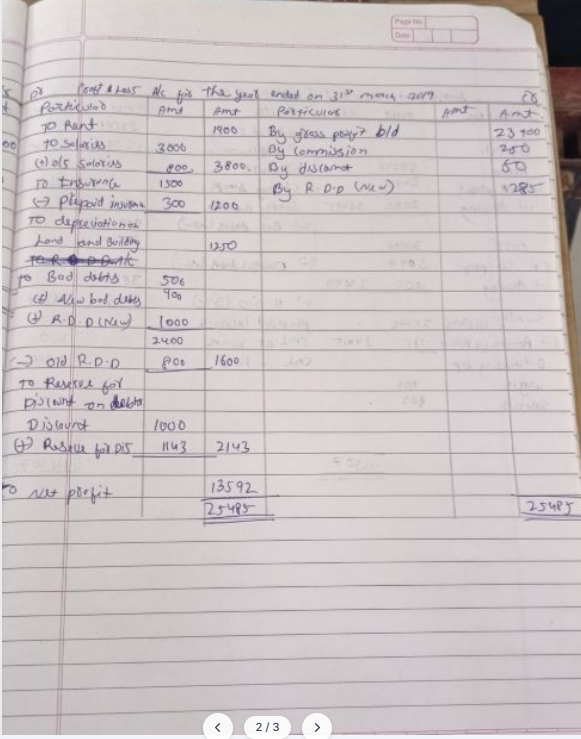 Page No.
Date
Dr Profit & Loss A/c for the year ended on 31st march 2019 Cr
Particular Amt Amt Particular Amt Amt
To Rent 1900 By gross profit b/d 23900
To Salaries 3000 By commission 250
(+) o/s Salaries 800 3800 By discount 50
To Insurance 1500 By R.D.D (New) 1285
(-) Prepaid insurance 300 1200
To depreciation on
Land and Building 1250
To Bad debts 500
(+) New bad debts 900
(+) R.D.D (New) 1000
2400
(-) Old R.D.D 800 1600
To Reserve for
Discount on debtor
Discount 1000
(+) Reserve for DIS 1143 2143
To Net profit 13592
25485 25485
2/3